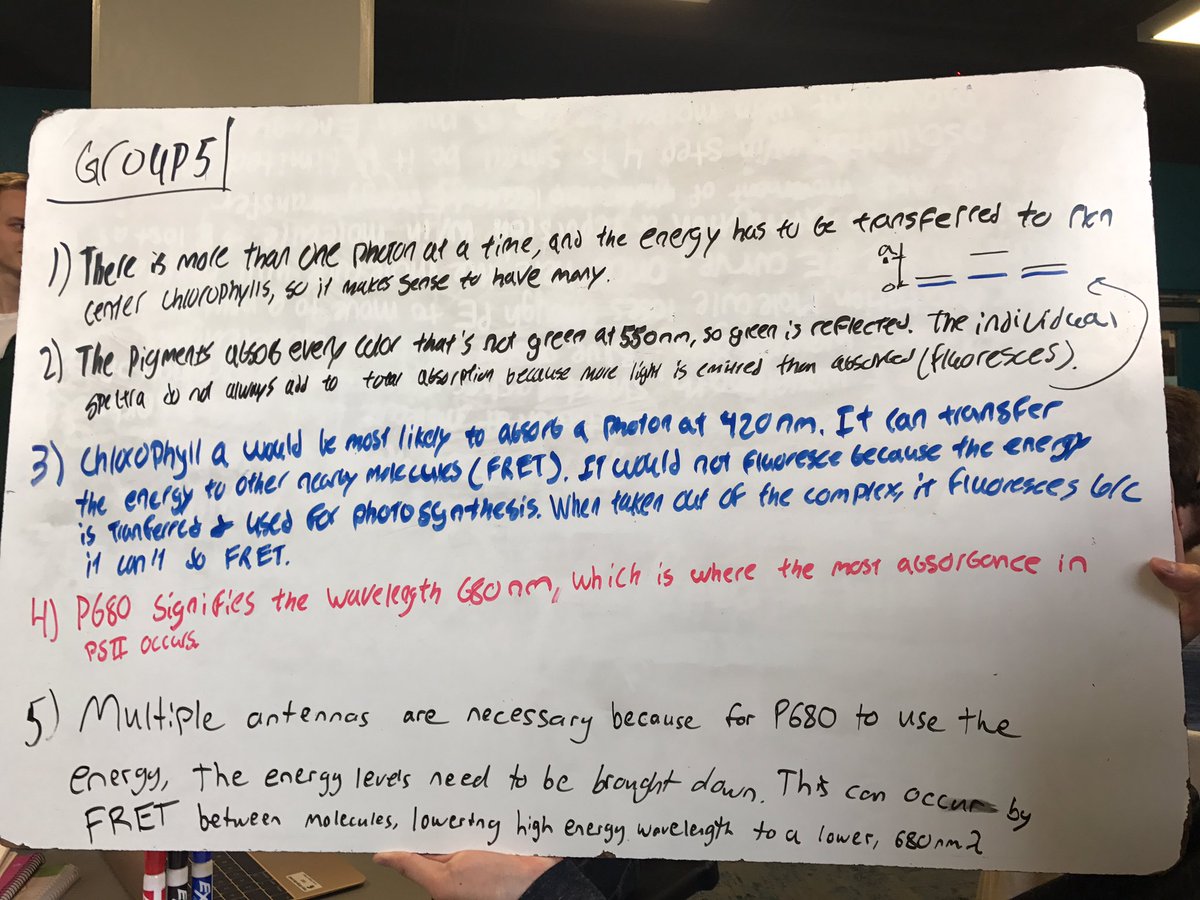 Group 5
1) There is more than one photon at a time, and the energy has to be transferred to rxn
center chlorophylls, so it makes sense to have many.
2) The pigments absob every color that's not green at 550nm, so green is reflected. The individual
spectra do not always add to total absorption because more light is emitted than absorbed (fluoresces).
3) Chlorophyll a would be most likely to absorb a photon at 420nm. It can transfer
the energy to other nearby molecules (FRET). It would not fluoresce because the energy
is tranferred & used for photosynthesis. When taken out of the complex, it fluoresces b/c
it can't do FRET.
4) P680 signifies the wavelength 680nm, which is where the most absorbance in
PSII occurs.
5) Multiple antennas are necessary because for P680 to use the
energy, the energy levels need to be brought down. This can occur by
FRET between molecules, lowering high energy wavelength to a lower, 680nm λ